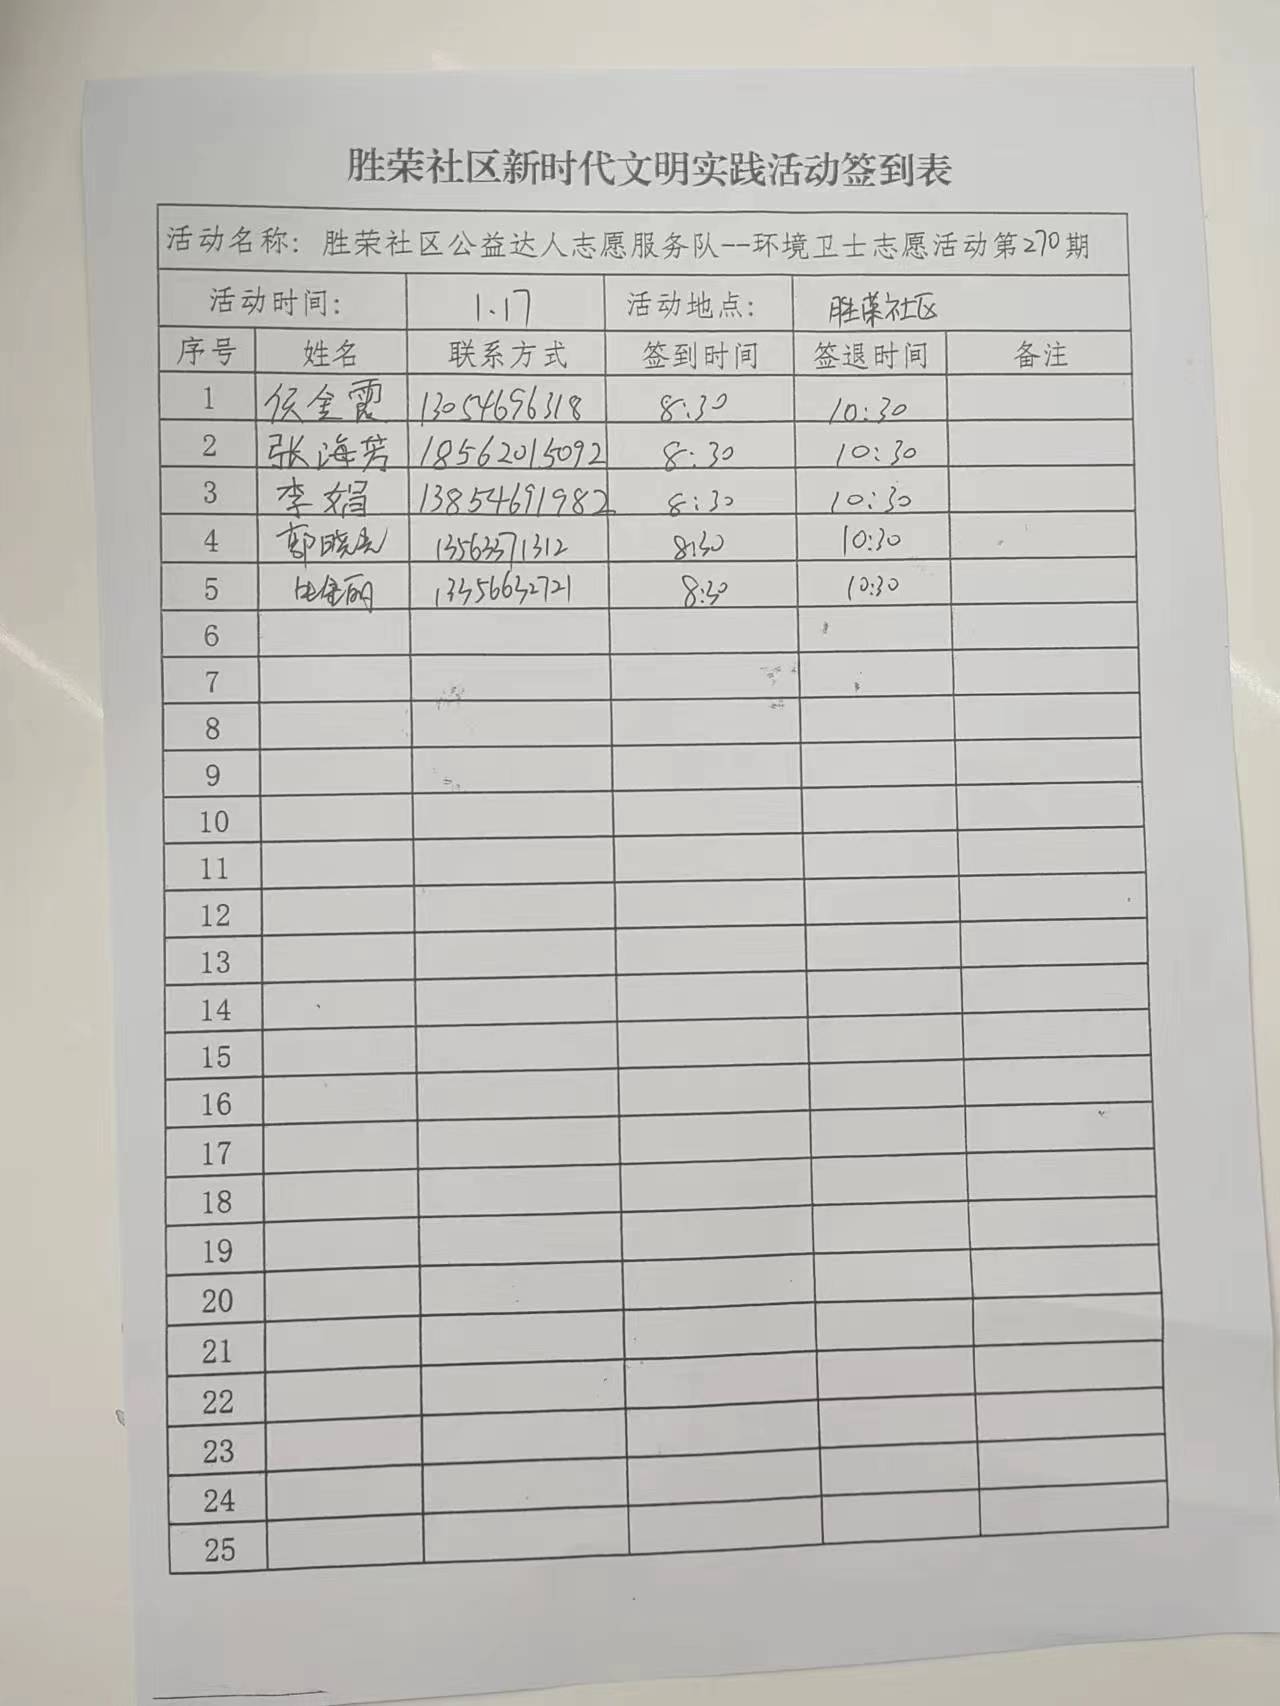 胜荣社区新时代文明实践活动签到表
活动名称：胜荣社区公益达人志愿服务队--环境卫士志愿活动第270期
活动时间： 1.17 活动地点： 胜荣社区
序号 姓名 联系方式 签到时间 签退时间 备注
1 侯金霞 13054696318 8:30 10:30
2 张海芳 18562015092 8:30 10:30
3 李娟 13854691982 8:30 10:30
4 13563371312 8:30 10:30
5 13356632721 8:30 10:30
6
7
8
9
10
11
12
13
14
15
16
17
18
19
20
21
22
23
24
25